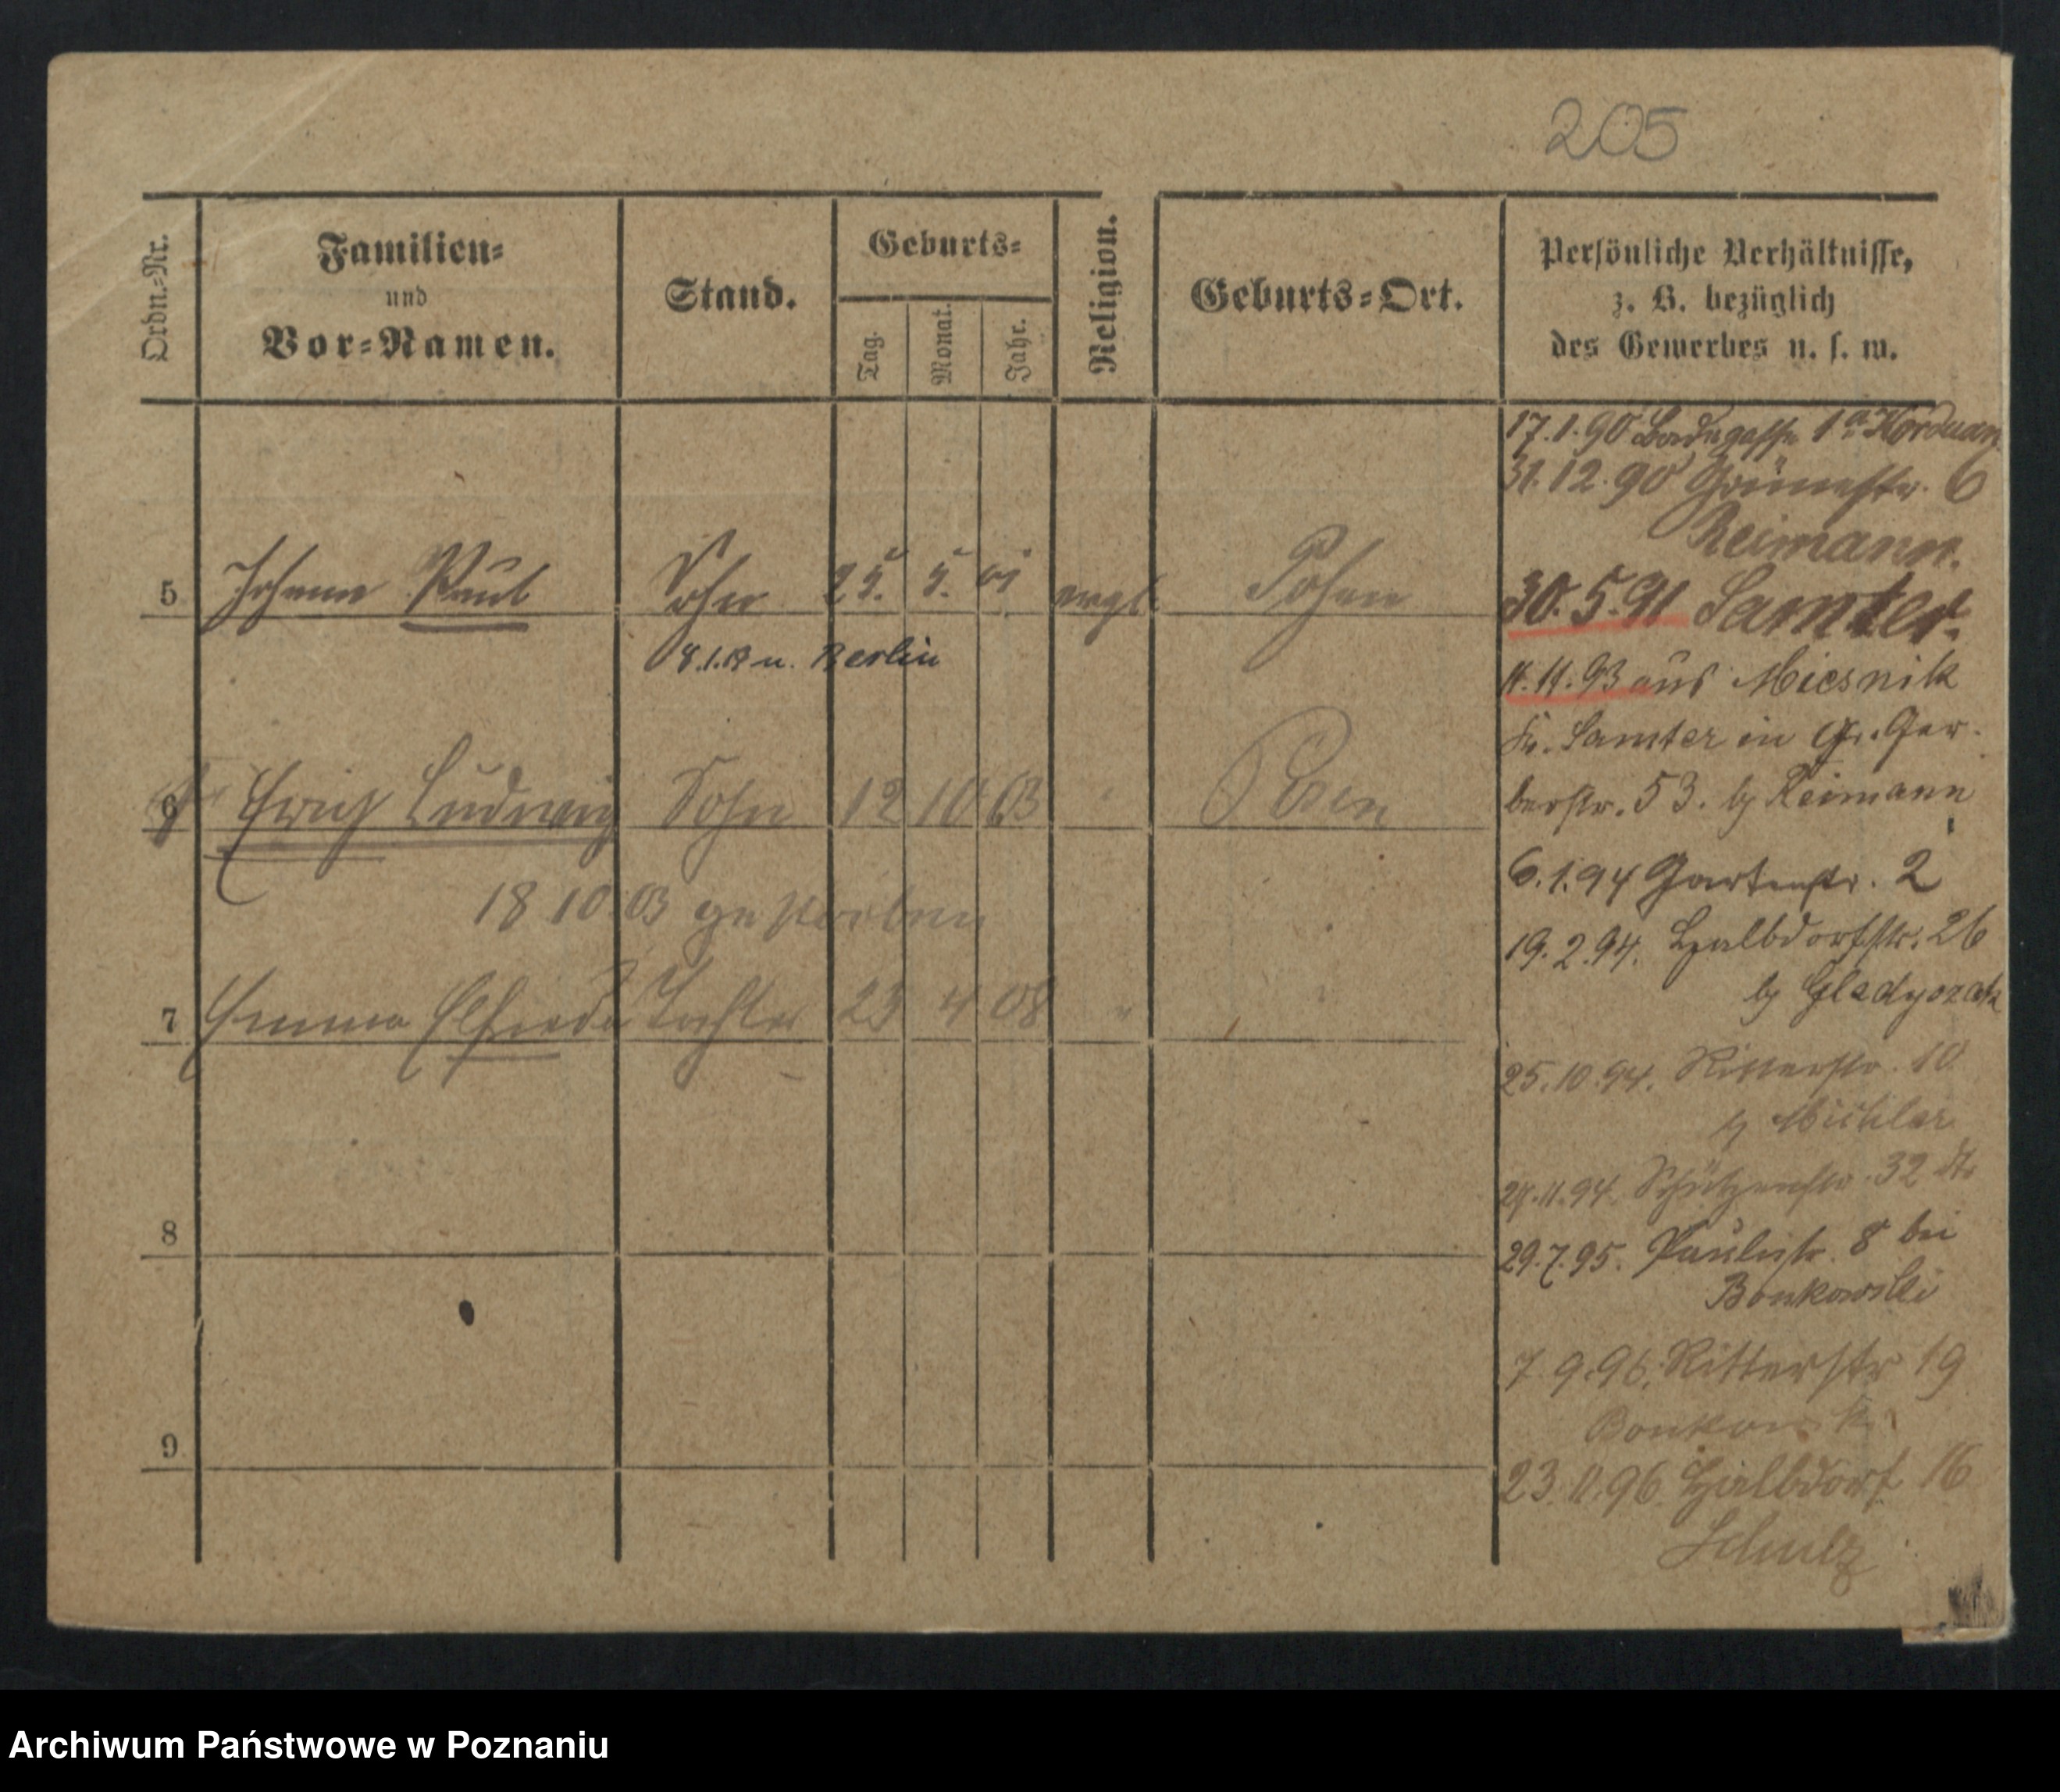 205
Ordn.-Nr.
Familien-
und
Vor-Namen.
Stand.
Geburts-
Tag.
Monat.
Jahr.
Religion.
Geburts-Ort.
Persönliche Verhältnisse,
z. B. bezüglich
des Gewerbes u. s. w.
5 Johann Paul Sohn 25. 5. 01 evgl. Posen
8.1. u. Berlin
6 Erich Ludwig Sohn 12 10 03 " Posen
18 10 03 gestorben
7 Emma Elfriede Tochter 23 4 08 "
8
9
17.1.90 1a
31.12.90 Grünestr. 6
Reimann.
30.5.91 Samter.
11.11.93 aus
Kr. Samter in Gr. Ger-
berstr. 53. b/ Reimann
6.1.94 Gartenstr. 2
19.2.94. Halbdorfstr. 26
b/
25.10.94. Ritterstr. 10
b/
29.11.94. Schützenstr. 32
29.7.95. Paulistr. 8 bei
Bonkowski
7 9.96. Ritterstr 19
Bonkowsk
23.11.96. Halbdorf 16
Schulz
Archiwum Państwowe w Poznaniu